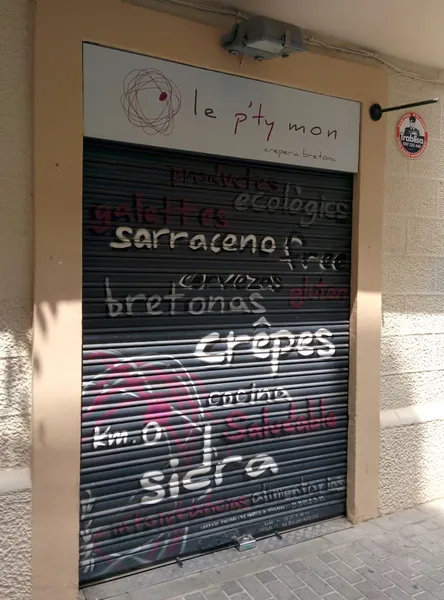 le p'ty mon
creperia bretona
productes
ecològics
galettes
sarraceno
free
cervezas
gluten
bretonas
crêpes
cocina
Km. 0
Saludable
sidra
intolerancias alimentarias